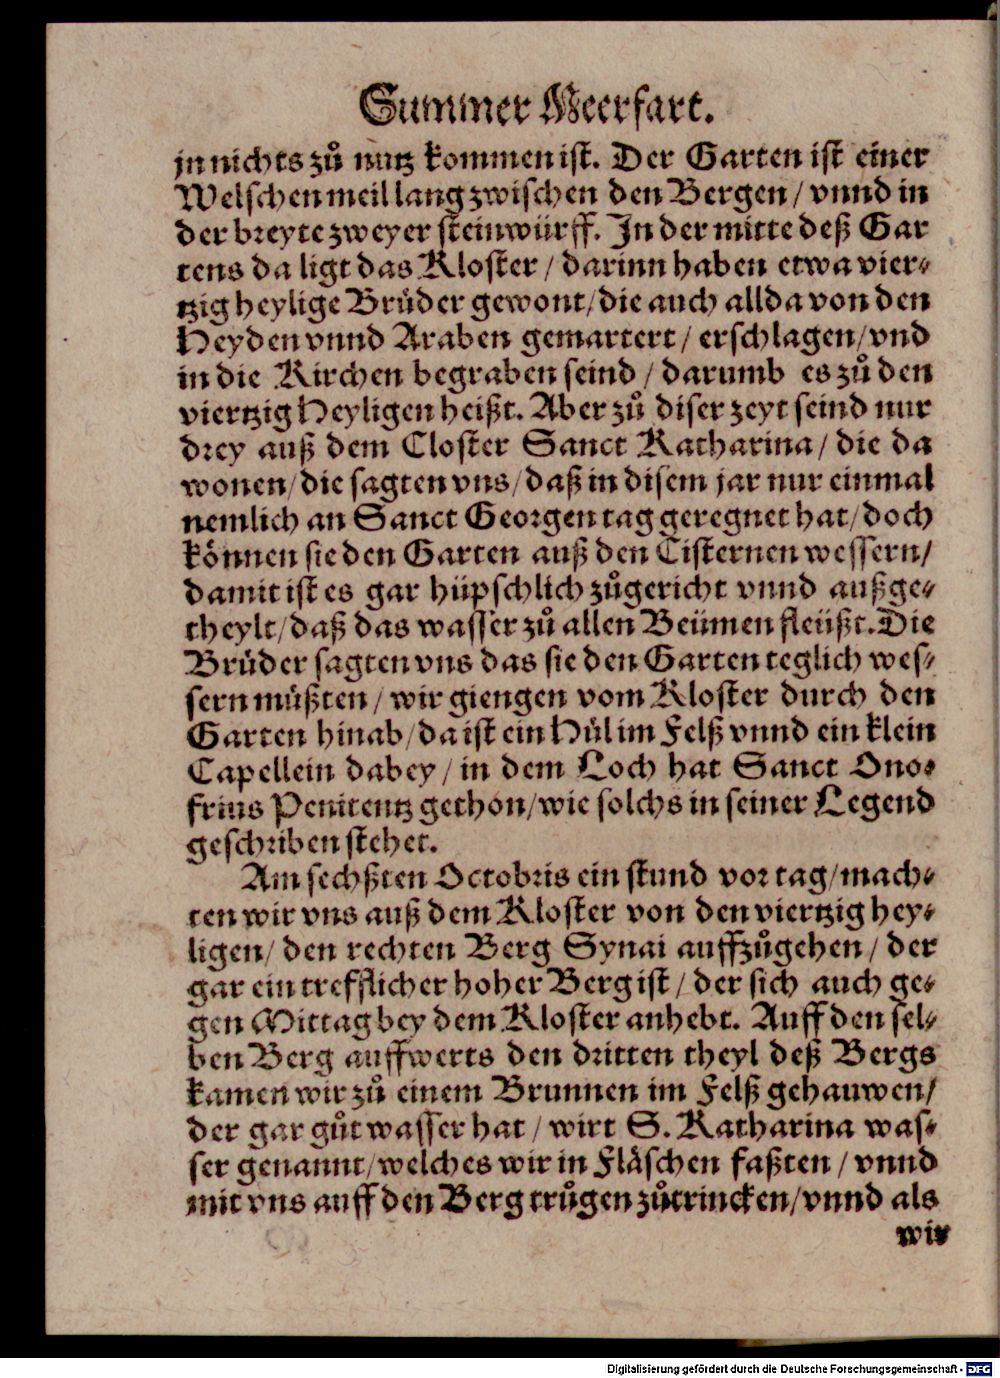 Summer Meerfart.
jn nichts zů nutz kommen ist. Der Garten ist einer
Welschen meil lang zwischen den Bergen / vnnd in
der breyte zweyer steinwürff. In der mitte deß Gar
tens da ligt das Kloster / darinn haben etwa vier⸗
tzig heylige Brüder gewont / die auch allda von den
Heyden vnnd Araben gemartert / erschlagen / vnd
in die Kirchen begraben seind / darumb es zů den
viertzig Heyligen heißt. Aber zů diser zeyt seind nur
drey auß dem Closter Sanct Katharina / die da
wonen / die sagten vns / daß in disem jar nur einmal
nemlich an Sanct Georgen tag geregnet hat / doch
können sie den Garten auß den Cisternen wessern /
damit ist es gar hüpschlich zůgericht vnnd außge⸗
theylt / daß das wasser zů allen Beümen fleüßt. Die
Brüder sagten vns das sie den Garten teglich wes⸗
sern müßten / wir giengen vom Kloster durch den
Garten hinab / da ist ein Hül im Felß vnnd ein klein
Capellein dabey / in dem Loch hat Sanct Ono⸗
frius Penitentz gethon / wie solchs in seiner Legend
geschriben stehet.
Am sechßten Octobris ein stund vor tag / mach⸗
ten wir vns auß dem Kloster von den viertzig hey⸗
ligen / den rechten Berg Synai auffzůgehen / der
gar ein trefflicher hoher Berg ist / der sich auch ge⸗
gen Mittag bey dem Kloster anhebt. Auff den sel⸗
ben Berg auffwerts den dritten theyl deß Bergs
kamen wir zů einem Brunnen im Felß gehauwen /
der gar gůt wasser hat / wirt S. Katharina was⸗
ser genannt / welches wir in Fläschen faßten / vnnd
mit vns auff den Berg trůgen zůtrincken / vnnd als
wir
Digitalisierung gefördert durch die Deutsche Forschungsgemeinschaft - DFG